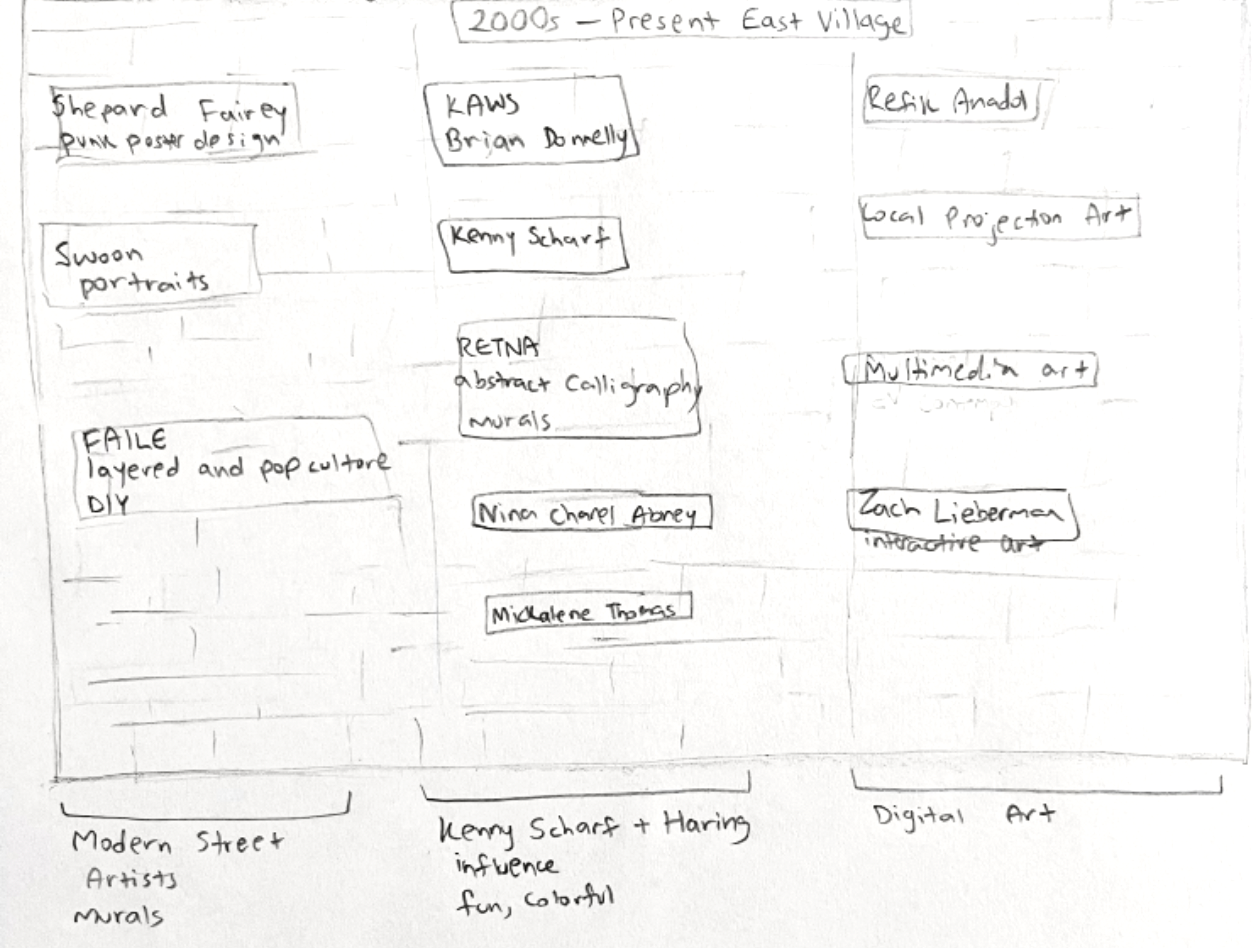 2000s - Present East Village
Shepard Fairey
punk poster design
Swoon
portraits
FAILE
layered and pop culture
DIY
KAWS
Brian Donnelly
Kenny Scharf
RETNA
abstract Calligraphy
murals
Nina Chanel Abney
Mickalene Thomas
Refik Anadol
Local Projection Art
Multimedia art
Zach Lieberman
interactive art
Modern Street
Artists
murals
Kenny Scharf + Haring
influence
fun, colorful
Digital Art